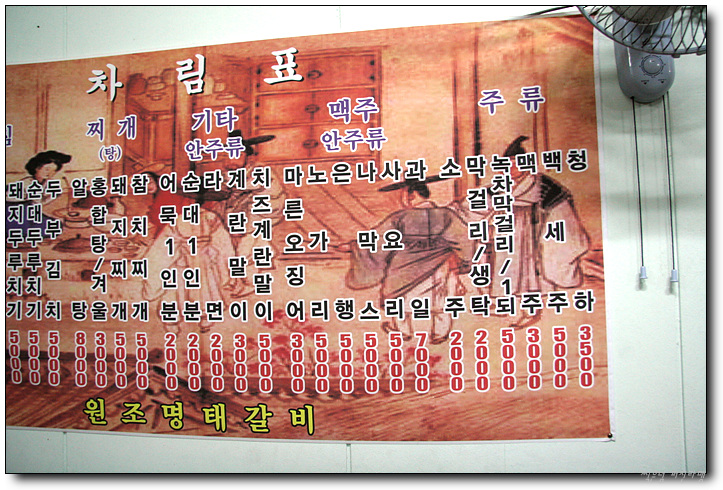 차림표
찌개
(탕)
기타
안주류
맥주
안주류
주류
돼지두루치기 5000
순대두루치기 5000
두부김치 5000
알탕 8000
홍합탕/겨울 3000
돼지찌개 5000
참치찌개 5000
어묵1인분 2000
순대1인분 2000
라면 2000
계란말이 3000
치즈계란말이 5000
마른오징어 3000
노가리 5000
은행 5000
나막스 5000
사요리 5000
과일 7000
소주 2000
막걸리/생탁 2000
녹차막걸리/1되 5000
맥주 3000
백세주 5000
청하 3500
원조명태갈비